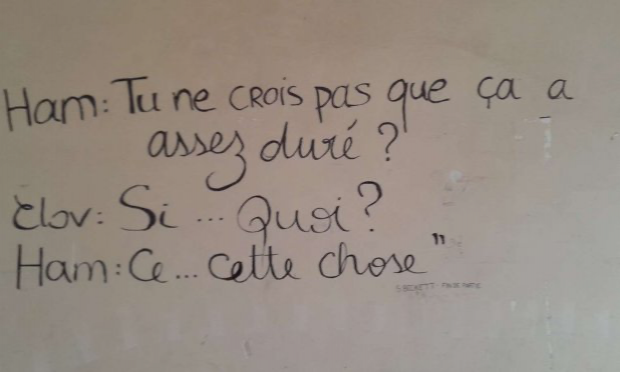 Ham: Tu ne CROIS pas que ça a
assez duré ?
Clov: Si ... Quoi ?
Ham: Ce ... cette chose "
S BECKETT FIN DE PARTIE